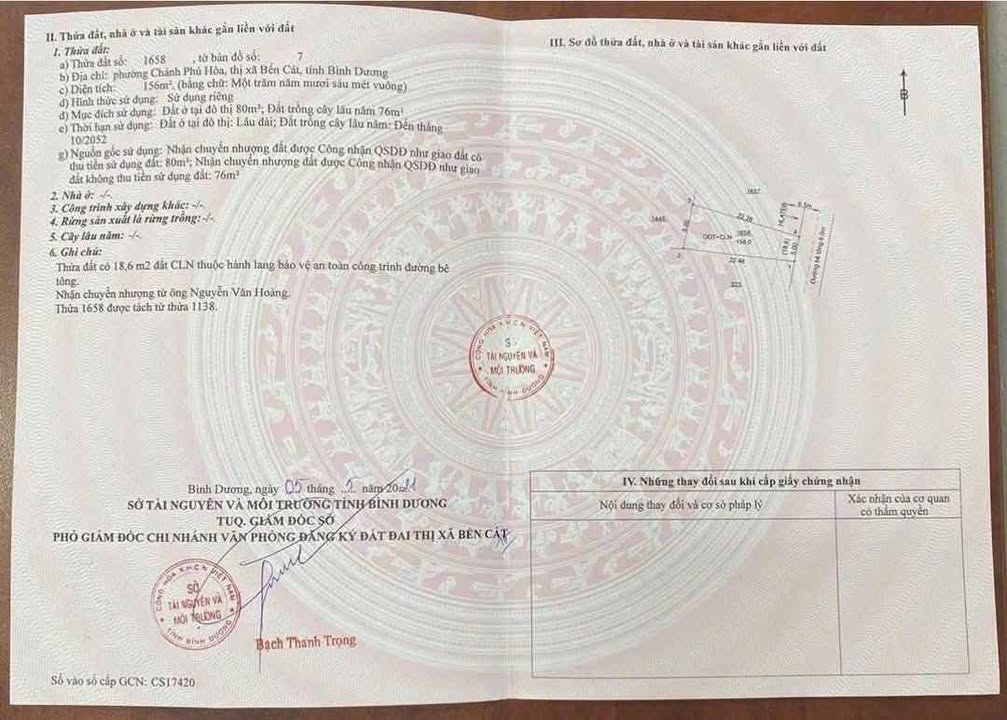 II. Thửa đất, nhà ở và tài sản khác gắn liền với đất
1. Thửa đất:
a) Thửa đất số: 1658 , tờ bản đồ số: 7
b) Địa chỉ: phường Chánh Phú Hòa, thị xã Bến Cát, tỉnh Bình Dương
c) Diện tích: 156m², (bằng chữ: Một trăm năm mươi sáu mét vuông)
d) Hình thức sử dụng: Sử dụng riêng
đ) Mục đích sử dụng: Đất ở tại đô thị 80m²; Đất trồng cây lâu năm 76m²
e) Thời hạn sử dụng: Đất ở tại đô thị: Lâu dài; Đất trồng cây lâu năm: Đến tháng
10/2052
g) Nguồn gốc sử dụng: Nhận chuyển nhượng đất được Công nhận QSDĐ như giao đất có
thu tiền sử dụng đất: 80m²; Nhận chuyển nhượng đất được Công nhận QSDĐ như giao
đất không thu tiền sử dụng đất: 76m²
2. Nhà ở: -/-.
3. Công trình xây dựng khác: -/-.
4. Rừng sản xuất là rừng trồng: -/-.
5. Cây lâu năm: -/-.
6. Ghi chú:
Thửa đất có 18,6 m2 đất CLN thuộc hành lang bảo vệ an toàn công trình đường bê
tông.
Nhận chuyển nhượng từ ông Nguyễn Văn Hoàng.
Thửa 1658 được tách từ thửa 1138.
Bình Dương, ngày 05 tháng 5 năm 2021
SỞ TÀI NGUYÊN VÀ MÔI TRƯỜNG TỈNH BÌNH DƯƠNG
TUQ. GIÁM ĐỐC SỞ
PHÓ GIÁM ĐỐC CHI NHÁNH VĂN PHÒNG ĐĂNG KÝ ĐẤT ĐAI THỊ XÃ BẾN CÁT
CỘNG HÒA X.H.C.N VIỆT NAM
SỞ
TÀI NGUYÊN VÀ
MÔI TRƯỜNG
TỈNH BÌNH DƯƠNG
Bạch Thanh Trọng
Số vào sổ cấp GCN: CS17420
CỘNG HÒA X.H.C.N VIỆT NAM
SỞ
TÀI NGUYÊN VÀ
MÔI TRƯỜNG
TỈNH BÌNH DƯƠNG
III. Sơ đồ thửa đất, nhà ở và tài sản khác gắn liền với đất
B
1657
6.5m
HLATĐB
22.28
3
1658
ODT+CLN
156.0
(18.6)
5.00
Đường bê tông 6.0m
2
22.48
1
IV. Những thay đổi sau khi cấp giấy chứng nhận
Nội dung thay đổi và cơ sở pháp lý
Xác nhận của cơ quan
có thẩm quyền